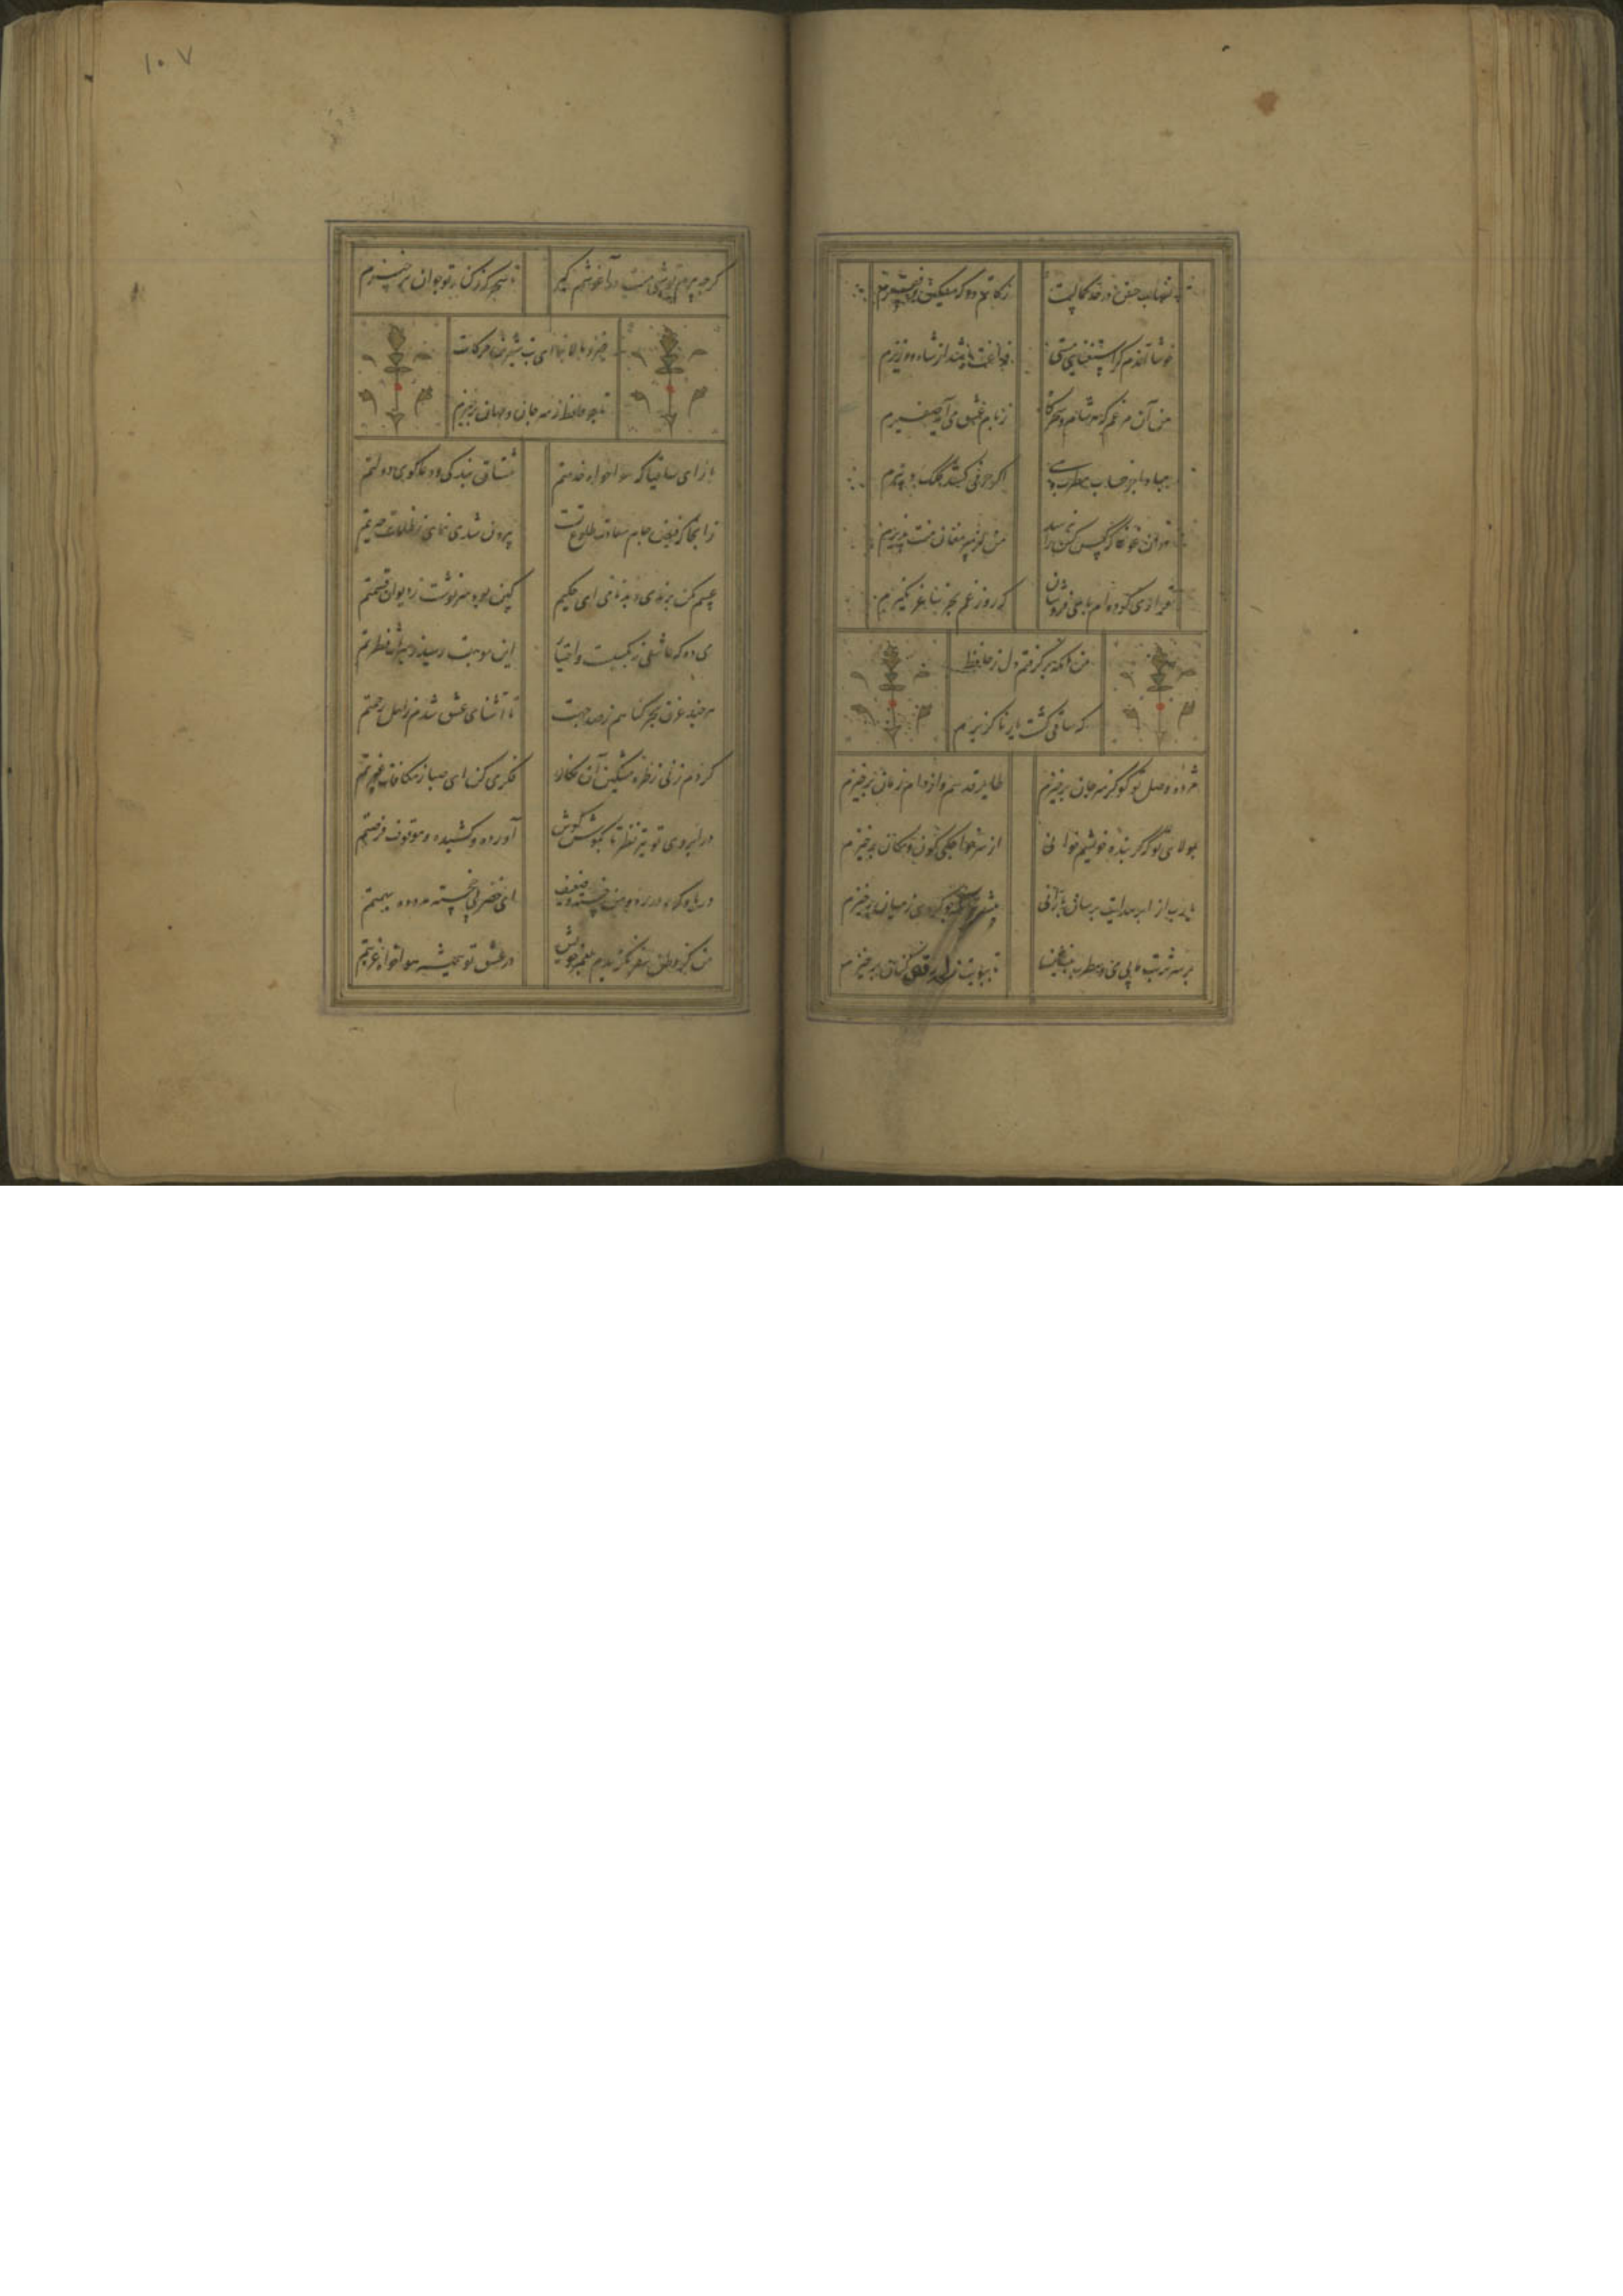 نصاب حسن در حد کمالست زکاتم ده که مسکین و فقیرم
خوشا آندم کز استغنای مستی فراغت باشد از شاه و وزیرم
من آن مرغم که هر شام و سحرگاه ز بام عرش می‌آید صفیرم
اگر حرفی کشد کلک دبیرم
من از پیر مغان منت پذیرم
قراری کرده‌ام با می فروشان که روز غم بجز ساغر نگیرم
من آنکه برگرفتم دل ز حافظ
که ساقی گشت یار ناگزیرم
مژده وصل تو کو کز سر جان برخیزم طایر قدسم و از دام جهان برخیزم
بولای تو که گر بنده خویشم خوانی از سر خواجکی کون و مکان برخیزم
یارب از ابر هدایت برسان بارانی پیشتر زانکه چو گردی ز میان برخیزم
بر سر تربت ما بی می و مطرب منشین تا ببویت ز لحد رقص کنان برخیزم
۱۰۷
گرچه پیرم تو شبی تنگ در آغوشم گیر تا سحرگه ز کنار تو جوان برخیزم
خیز و بالا بنما ای بت شیرین حرکات
تا چو حافظ ز سر جان و جهان برخیزم
بازآی ساقیا که هواخواه خدمتم مشتاق بندگی و دعاگوی دولتم
زانجا که فیض جام سعادت فروغ تست بیرون شدی نمای ز ظلمات حیرتم
عیبم مکن برندی و بدنامی ای حکیم کین بود سرنوشت ز دیوان قسمتم
می ده که عاشقی نه بکسبست و اختیار این موهبت رسید ز میراث فطرتم
هر چند غرق بحر گناهم ز صد جهت تا آشنای عشق شدم ز اهل رحمتم
گردم زنی ز طره مشکین آن نگار فکری کن ای صبا ز مکافات غیرتم
در ابروی تو تیر نظر تا بگوش هوش آورده و کشیده و موقوف فرصتم
دریا و کوه در ره و من خسته و ضعیف ای خضر پی خجسته مدد ده بهمتم
من کز وطن سفر نگزیدم بعمر خویش در عشق تو همیشه هواخواه غربتم